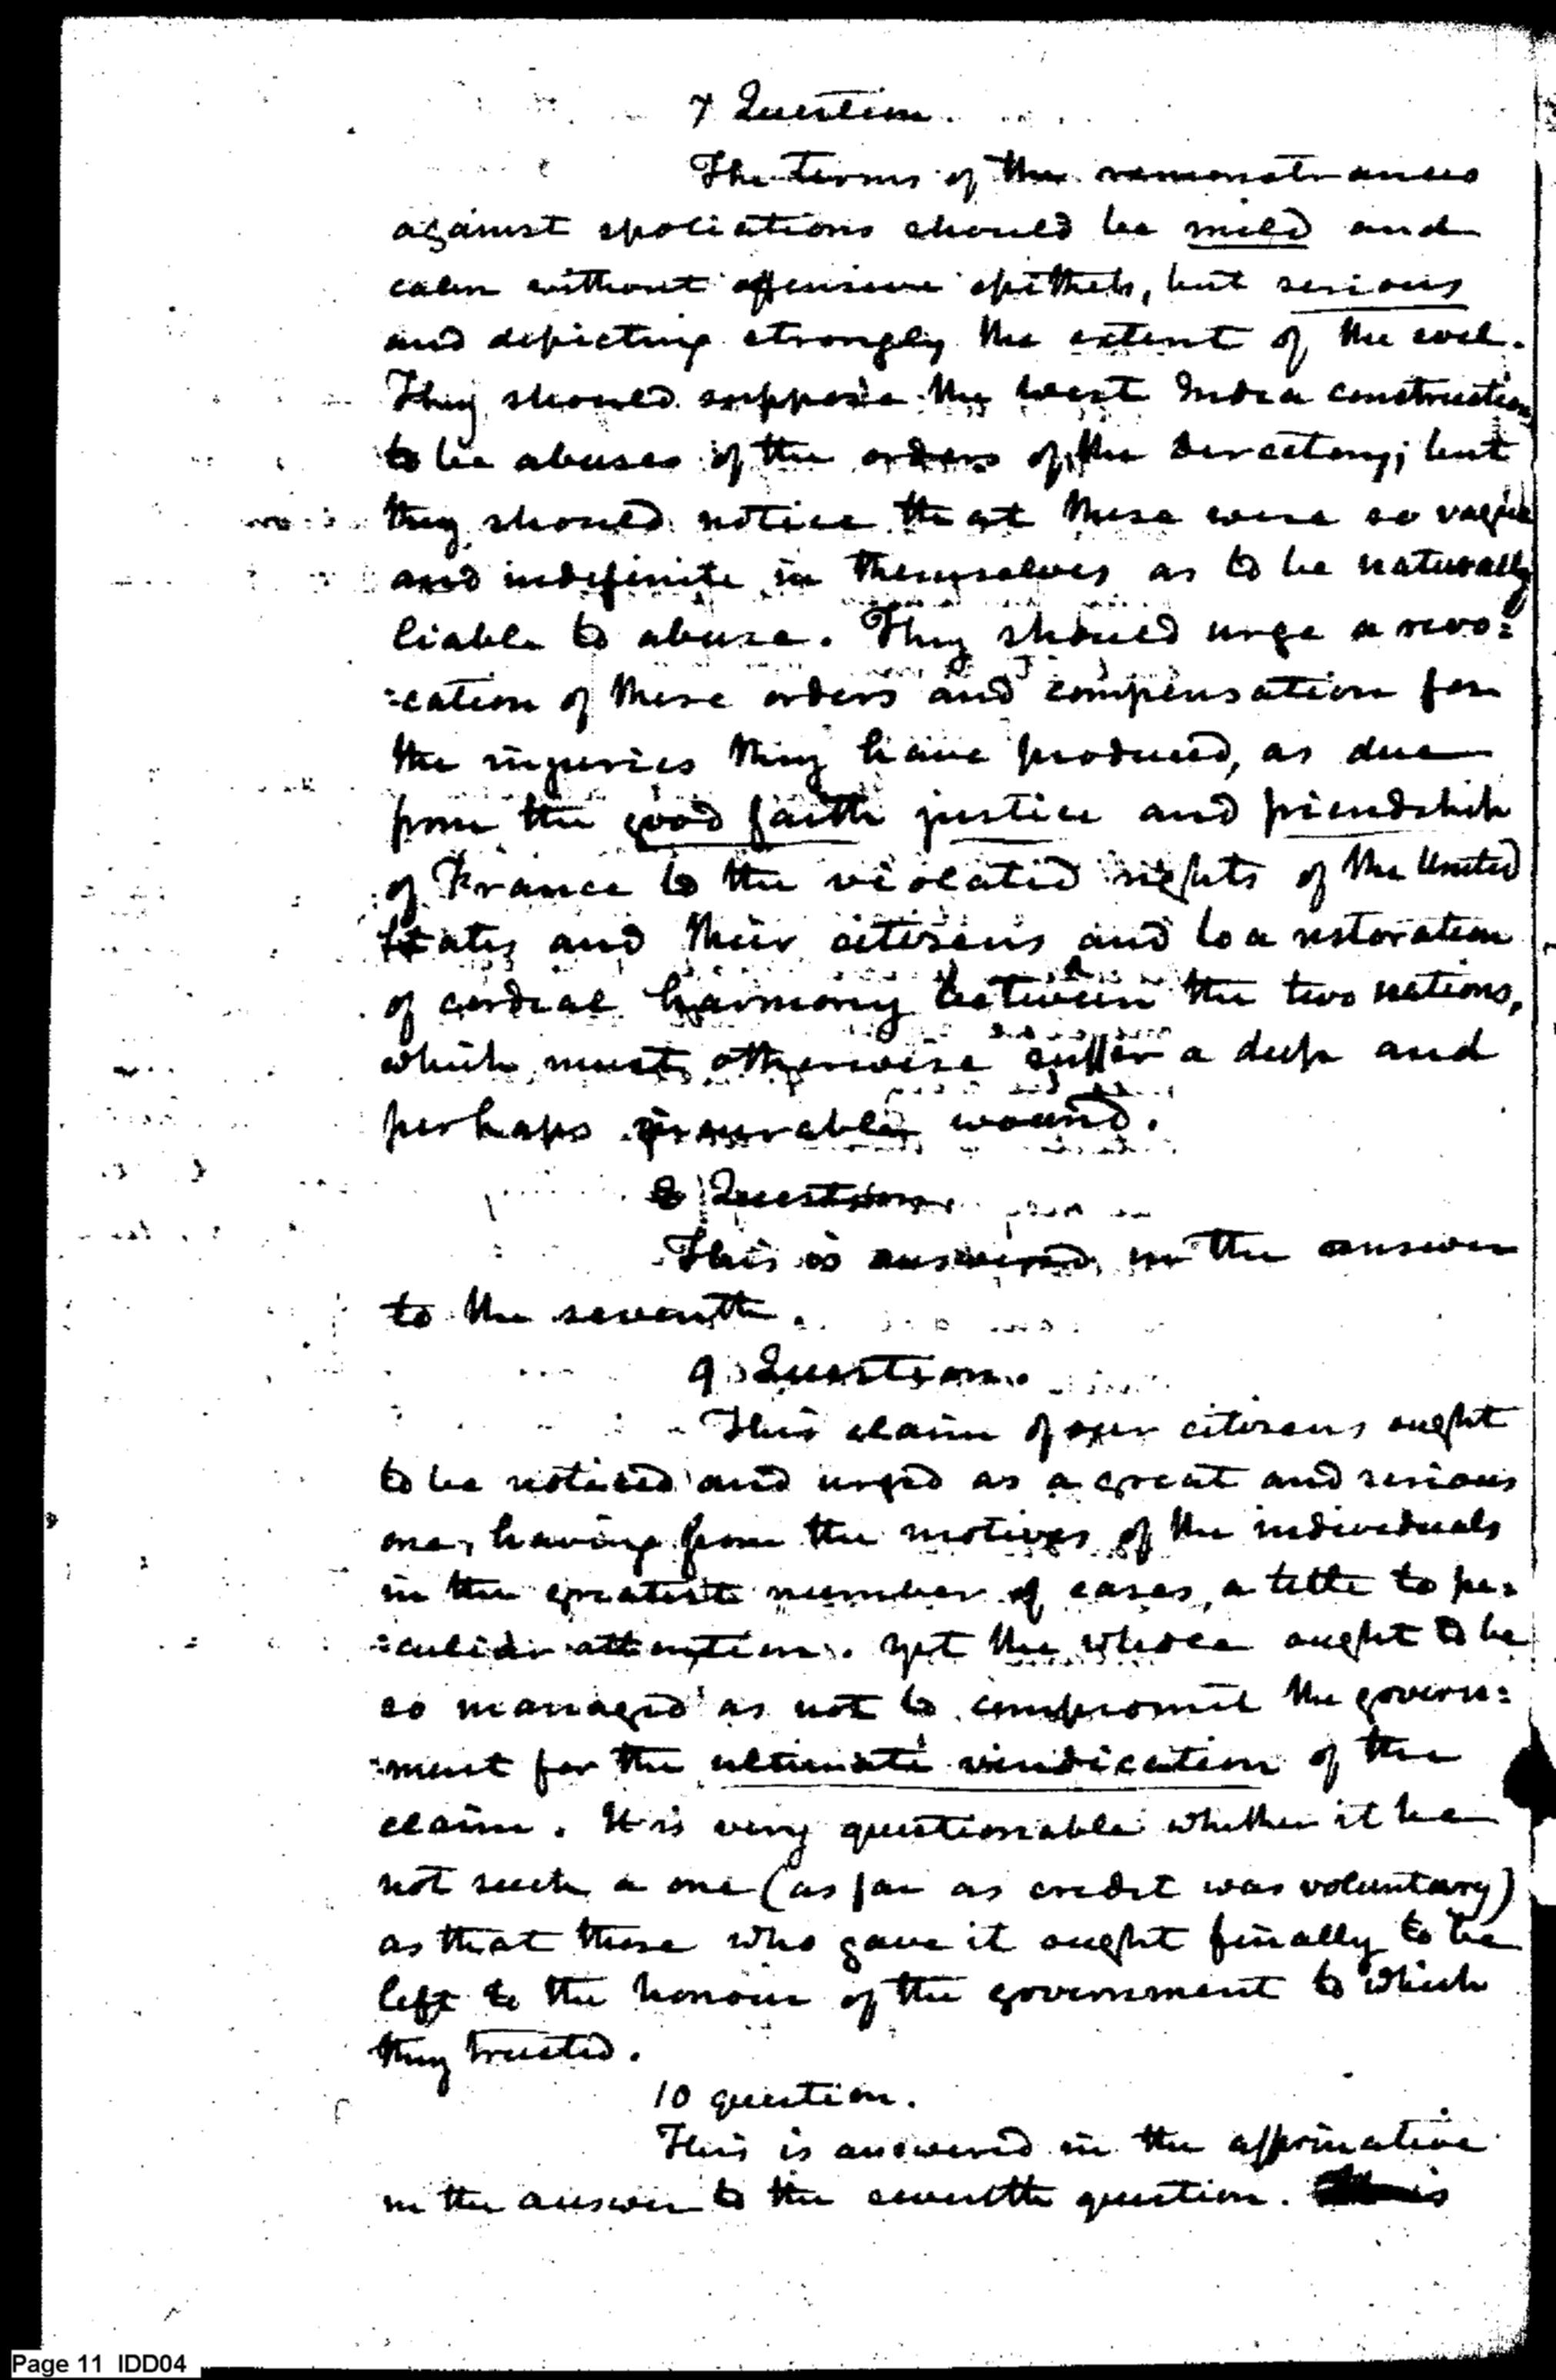 7 Question.
The terms of the remonstrances
against spoliations should be mild and
calm without offensive epithets, but serious
and depicting strongly the extent of the evil.
They should suppose the West India constructions
to be abuses of the orders of the Directory; but
they should notice that these were so vague
and indefinite in themselves as to be naturally
liable to abuse. They should urge a revo=
=cation of these orders and compensation for
the injuries they have produced, as due
from the good faith justice and friendship
of France to the violated rights of the United
States and their citizens and to a restoration
of cordial harmony between the two nations,
which must otherwise suffer a deep and
perhaps incurable wound.
8 Question.
This is answered in the answer
to the seventh.
9 Question.
This claim of our citizens ought
to be noticed and urged as a great and serious
one, having from the motives of the individuals
in the greatest number of cases, a title to pe=
=culiar attention. yet the whole ought to be
so managed as not to compromit the govern=
=ment for the ultimate vindication of the
claim. It is very questionable whether it be
not such a one (as far as credit was voluntary)
as that those who gave it ought finally to be
left to the honour of the government to which
they trusted.
10 question.
This is answered in the affirmative
in the answer to the seventh question. is
Page 11 IDD04